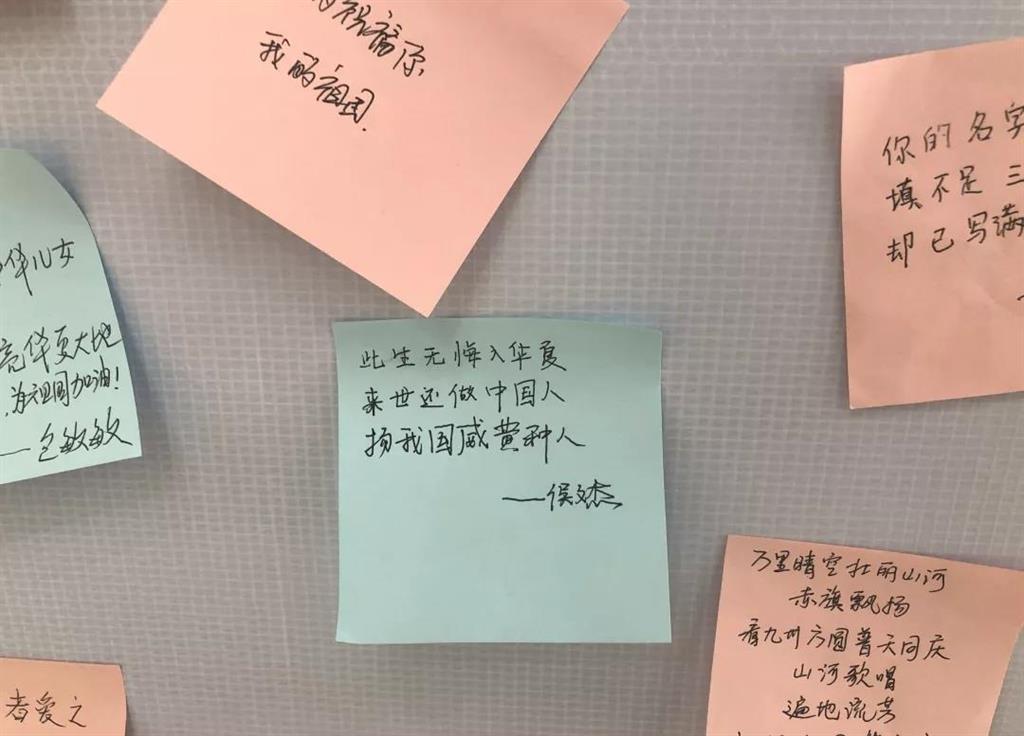 祝福你
我的祖国.
你的名字
填不足三
却已写满
华儿女
亮华夏大地
为祖国加油!
——包敏敏
此生无悔入华夏
来世还做中国人
扬我国威黄种人
——侯文杰
万里晴空壮丽山河
赤旗飘扬
看九州方圆普天同庆
山河歌唱
遍地流芳
者爱之